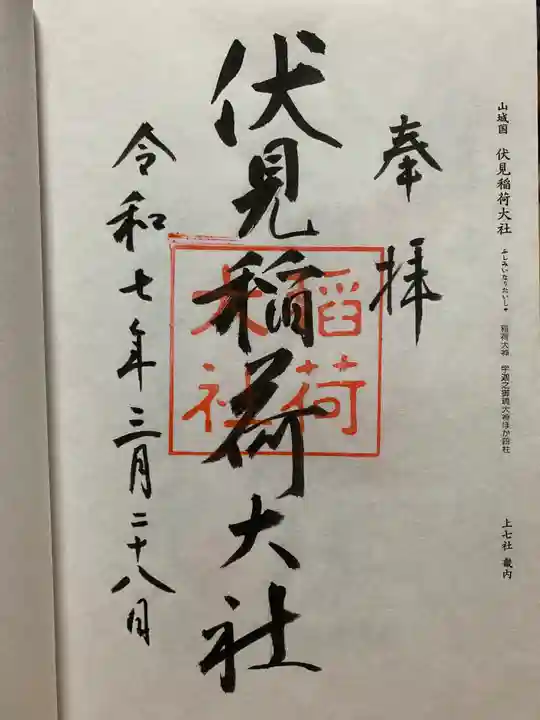 山城国 伏見稲荷大社 ふしみいなりたいしゃ 稲荷大神 宇迦之御魂大神ほか四柱
上七社 畿内
奉拝
伏見稲荷大社
稲荷
大社
令和七年三月二十八日